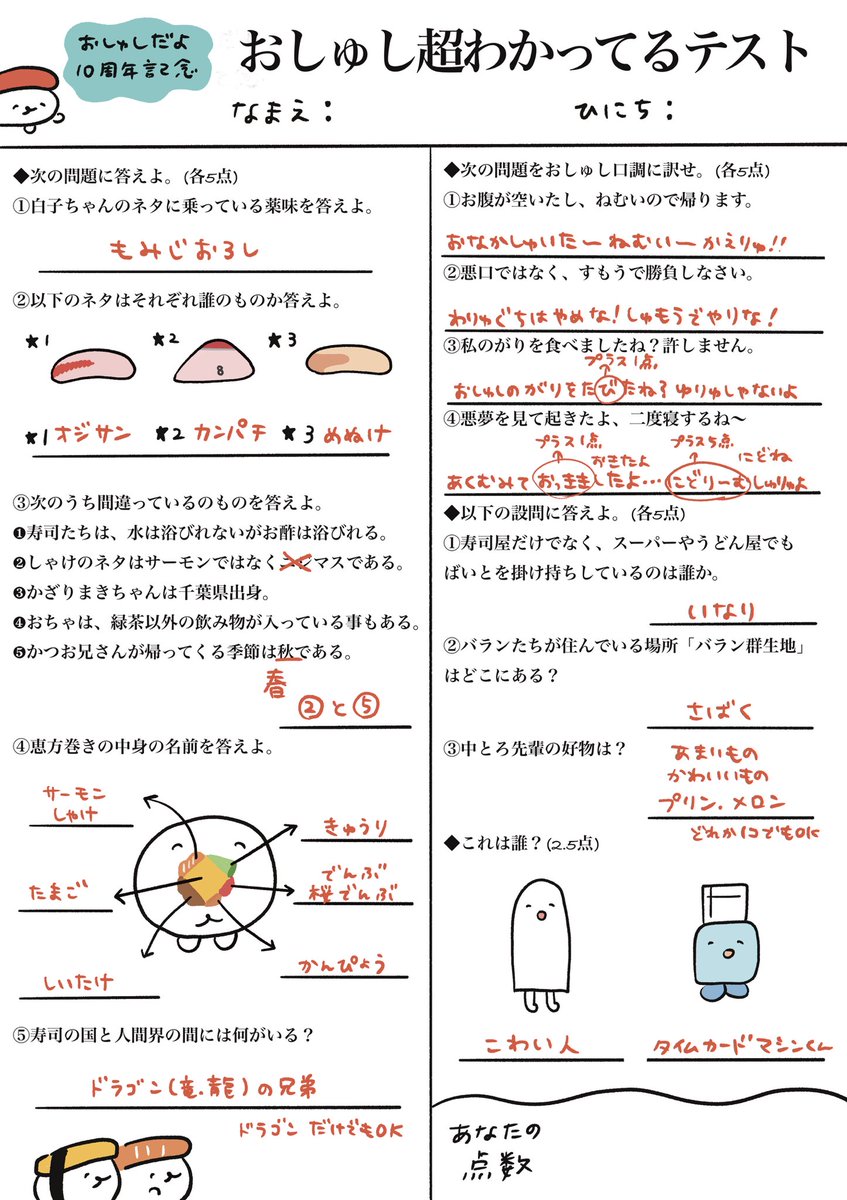 おしゅしだよ
10周年記念
おしゅし超わかってるテスト
なまえ：
ひにち：
◆次の問題に答えよ。(各5点)
①白子ちゃんのネタに乗っている薬味を答えよ。
もみじおろし
②以下のネタはそれぞれ誰のものか答えよ。
★1
★2
★3
8
★1 オジサン ★2 カンパチ ★3 めぬけ
③次のうち間違っているのものを答えよ。
❶寿司たちは、水は浴びれないがお酢は浴びれる。
❷しゃけのネタはサーモンではなくニジマスである。
❸かざりまきちゃんは千葉県出身。
❹おちゃは、緑茶以外の飲み物が入っている事もある。
❺かつお兄さんが帰ってくる季節は秋である。
春
②と⑤
④恵方巻きの中身の名前を答えよ。
サーモン
しゃけ
きゅうり
たまご
でんぶ
桜でんぶ
しいたけ
かんぴょう
⑤寿司の国と人間界の間には何がいる？
ドラゴン(竜.龍)の兄弟
ドラゴン だけでもOK
◆次の問題をおしゅし口調に訳せ。(各5点)
①お腹が空いたし、ねむいので帰ります。
おなかしゅいたー ねむいー かえりゅ!!
②悪口ではなく、すもうで勝負しなさい。
わりゅぐちはやめな！しゅもうでやりな！
③私のがりを食べましたね？許しません。
プラス1点
おしゅしのがりをたびたね？ゆりゅしゃないよ
④悪夢を見て起きたよ、二度寝するね〜
プラス1点
おきたよ
プラス5点
にどね
あくむみておっききしたよ…にどりーむしゅりゅよ
◆以下の設問に答えよ。(各5点)
①寿司屋だけでなく、スーパーやうどん屋でも
ばいとを掛け持ちしているのは誰か。
いなり
②バランたちが住んでいる場所「バラン群生地」
はどこにある？
さばく
③中とろ先輩の好物は？
あまいもの
かわいいもの
プリン.メロン
どれか1コでもOK
◆これは誰？(2.5点)
こわい人
タイムカードマシンくん
あなたの
点数